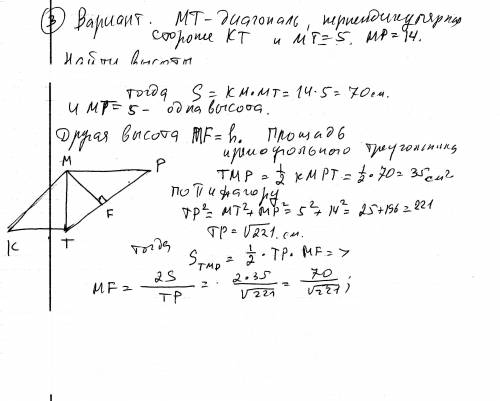 ③ Вариант. МТ - диагональ, перпендикулярная
стороне КТ и МТ=5. МР=14.
Найти высоты
тогда S = КМ·МТ = 14·5 = 70 см.
и МТ=5 - одна высота.
Другая высота MF=h. Площадь
прямоугольного треугольника
ТМР = 1/2 КМРТ = 1/2·70 = 35 см²
по Пифагору
ТР² = МТ² + МР² = 5² + 14² = 25+196 = 221
ТР = √221 см.
тогда
S ТМР = 1/2 · ТР · MF =>
MF = 2S/ТР = 2·35/√221 = 70/√221 ;
М Р
F
К Т